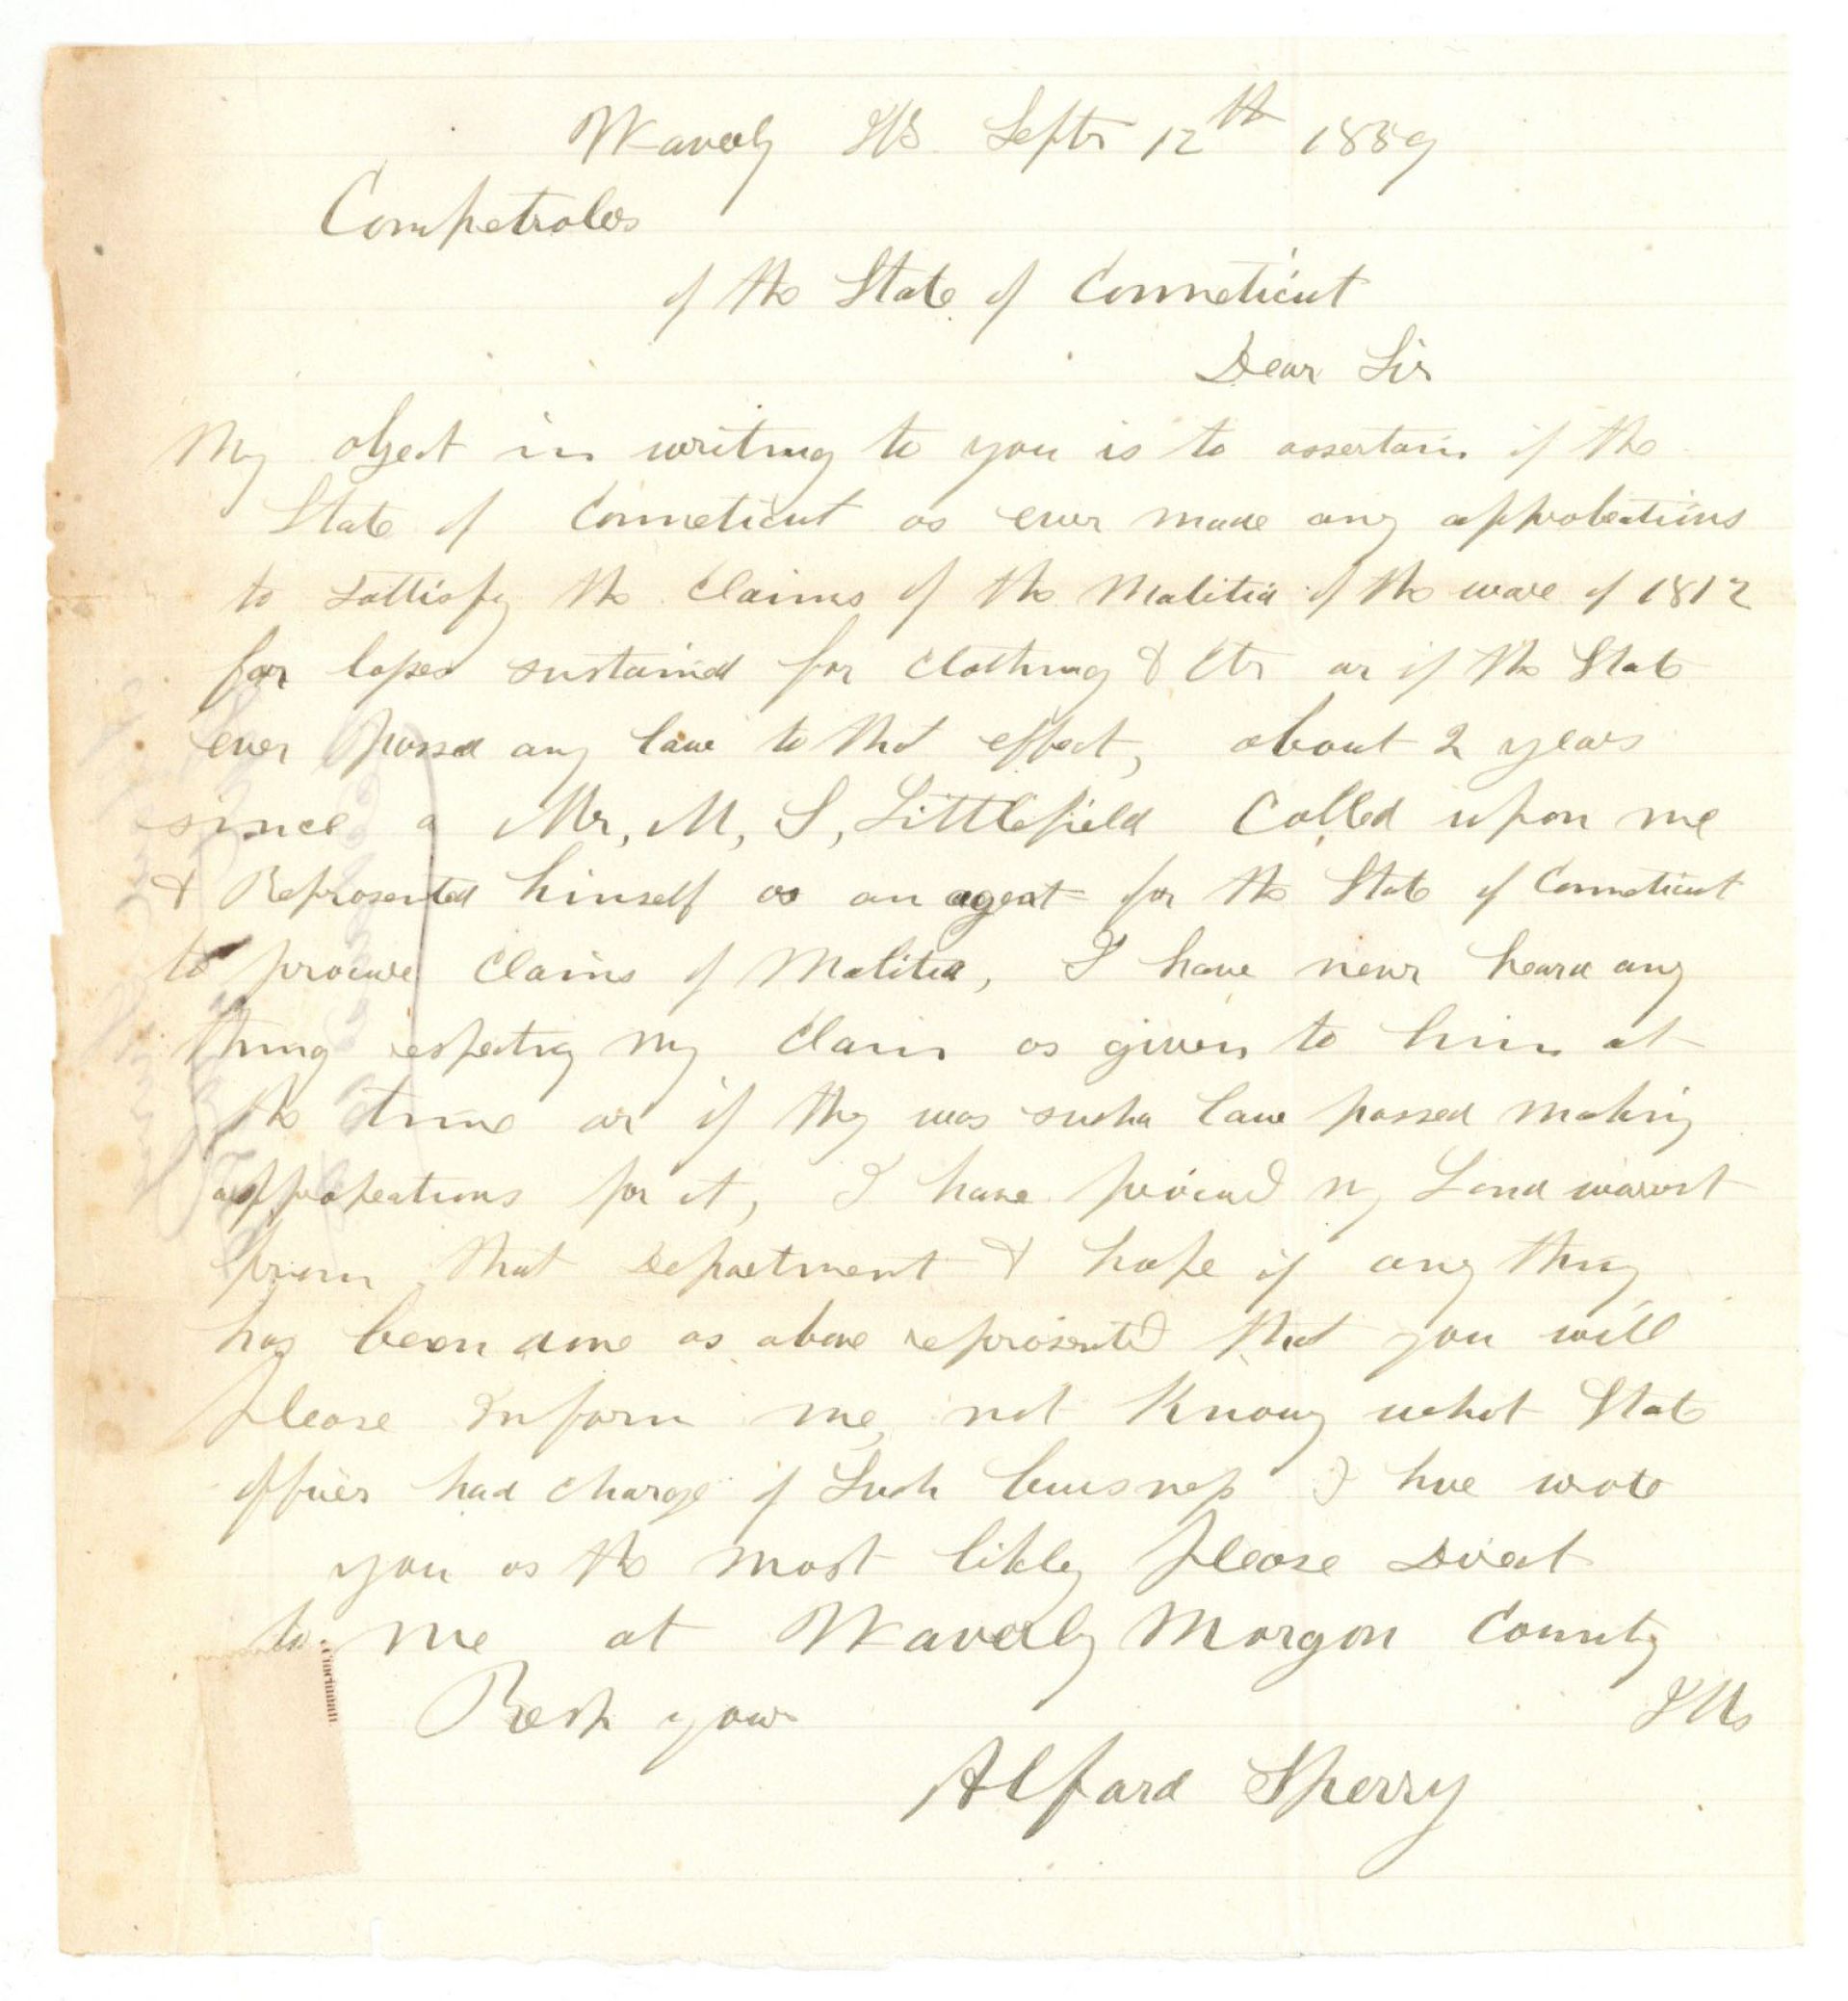 Waverly Ills. Septr 12th 1859
Comptroler
of the State of Conneticut
Dear Sir
My object in writing to you is to assertain if the
State of Conneticut as ever made any approbeations
to sattisfy the Claims of the Malitia of the ware of 1812
for losses sustained for Clothing & Etr or if the State
ever passed any law to that effect, about 2 years
since a Mr, M, S, Littlefield Called upon me
& Represented himself as an agent for the State of Conneticut
to procure Claims of Malitia, I have never heard any
thing respecting my Claim as given to him at
the time or if they was such a law passed making
appropeations for it, I have my Land warent
from that Department & hope if any thing
has been done as above represented that you will
Please Inform me, not Knowing what State
officer had charge of Such buisness I have wrote
you as the most likely Please Direct
to me at Waverly Morgan County
Ills
Resp yours
Alford Sperry
Cincinnati